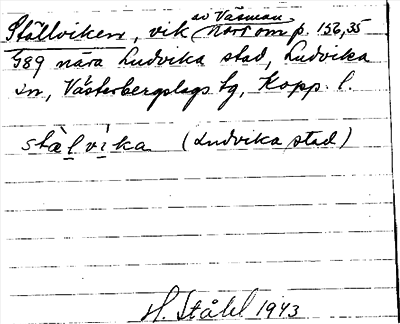 av Väsman
Ställviken, vik norr om p. 156,35
G89 nära Ludvika stad, Ludvika
sn, Västerbergslags tg, Kopp. l.
stälvika (Ludvika stad)
H. Ståhl 1943